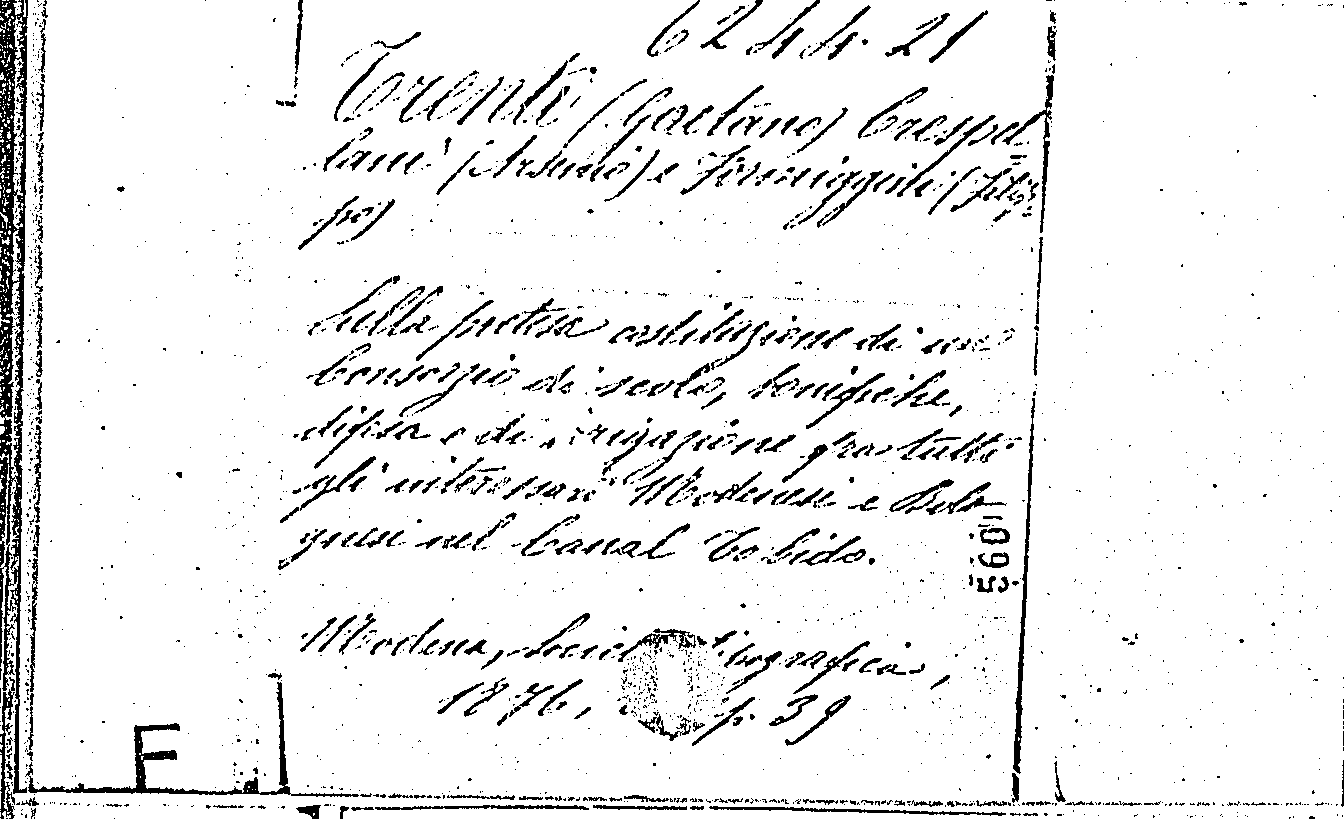 6244. 21
Trenti (Gaetano) Crespel=
lani (Arsenio) e Formiggini (Filip=
po)
Sulla pretesa costituzione di un
Consorzio di scolo, bonifiche,
difesa e di irrigazione fra tutti
gli interessati Modenesi e Bolo
gnesi nel Canal Torbido.
Modena, Società tipografica,
1876, p. 39
5601
F